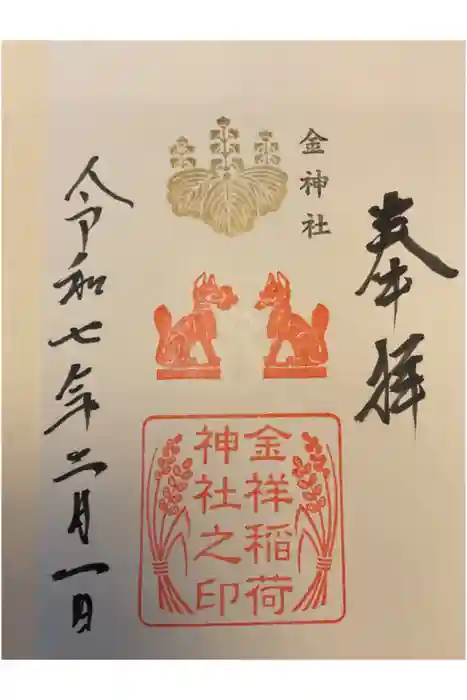 奉拝
金神社
金祥稲荷
神社之印
令和七年三月一日